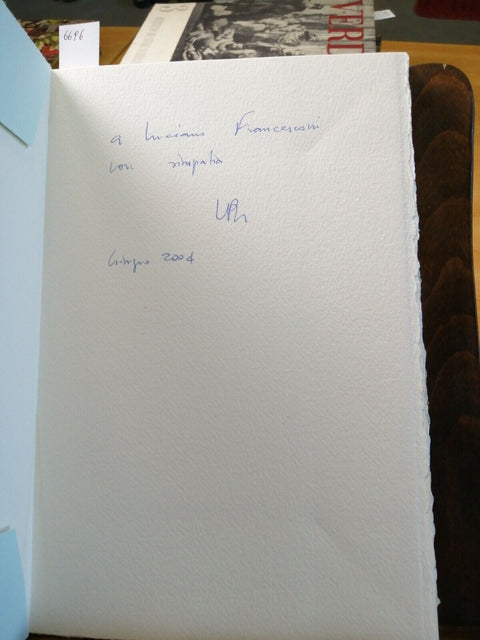 6696
VERD
a Luciano Francesconi
con simpatia
Giugno 2004